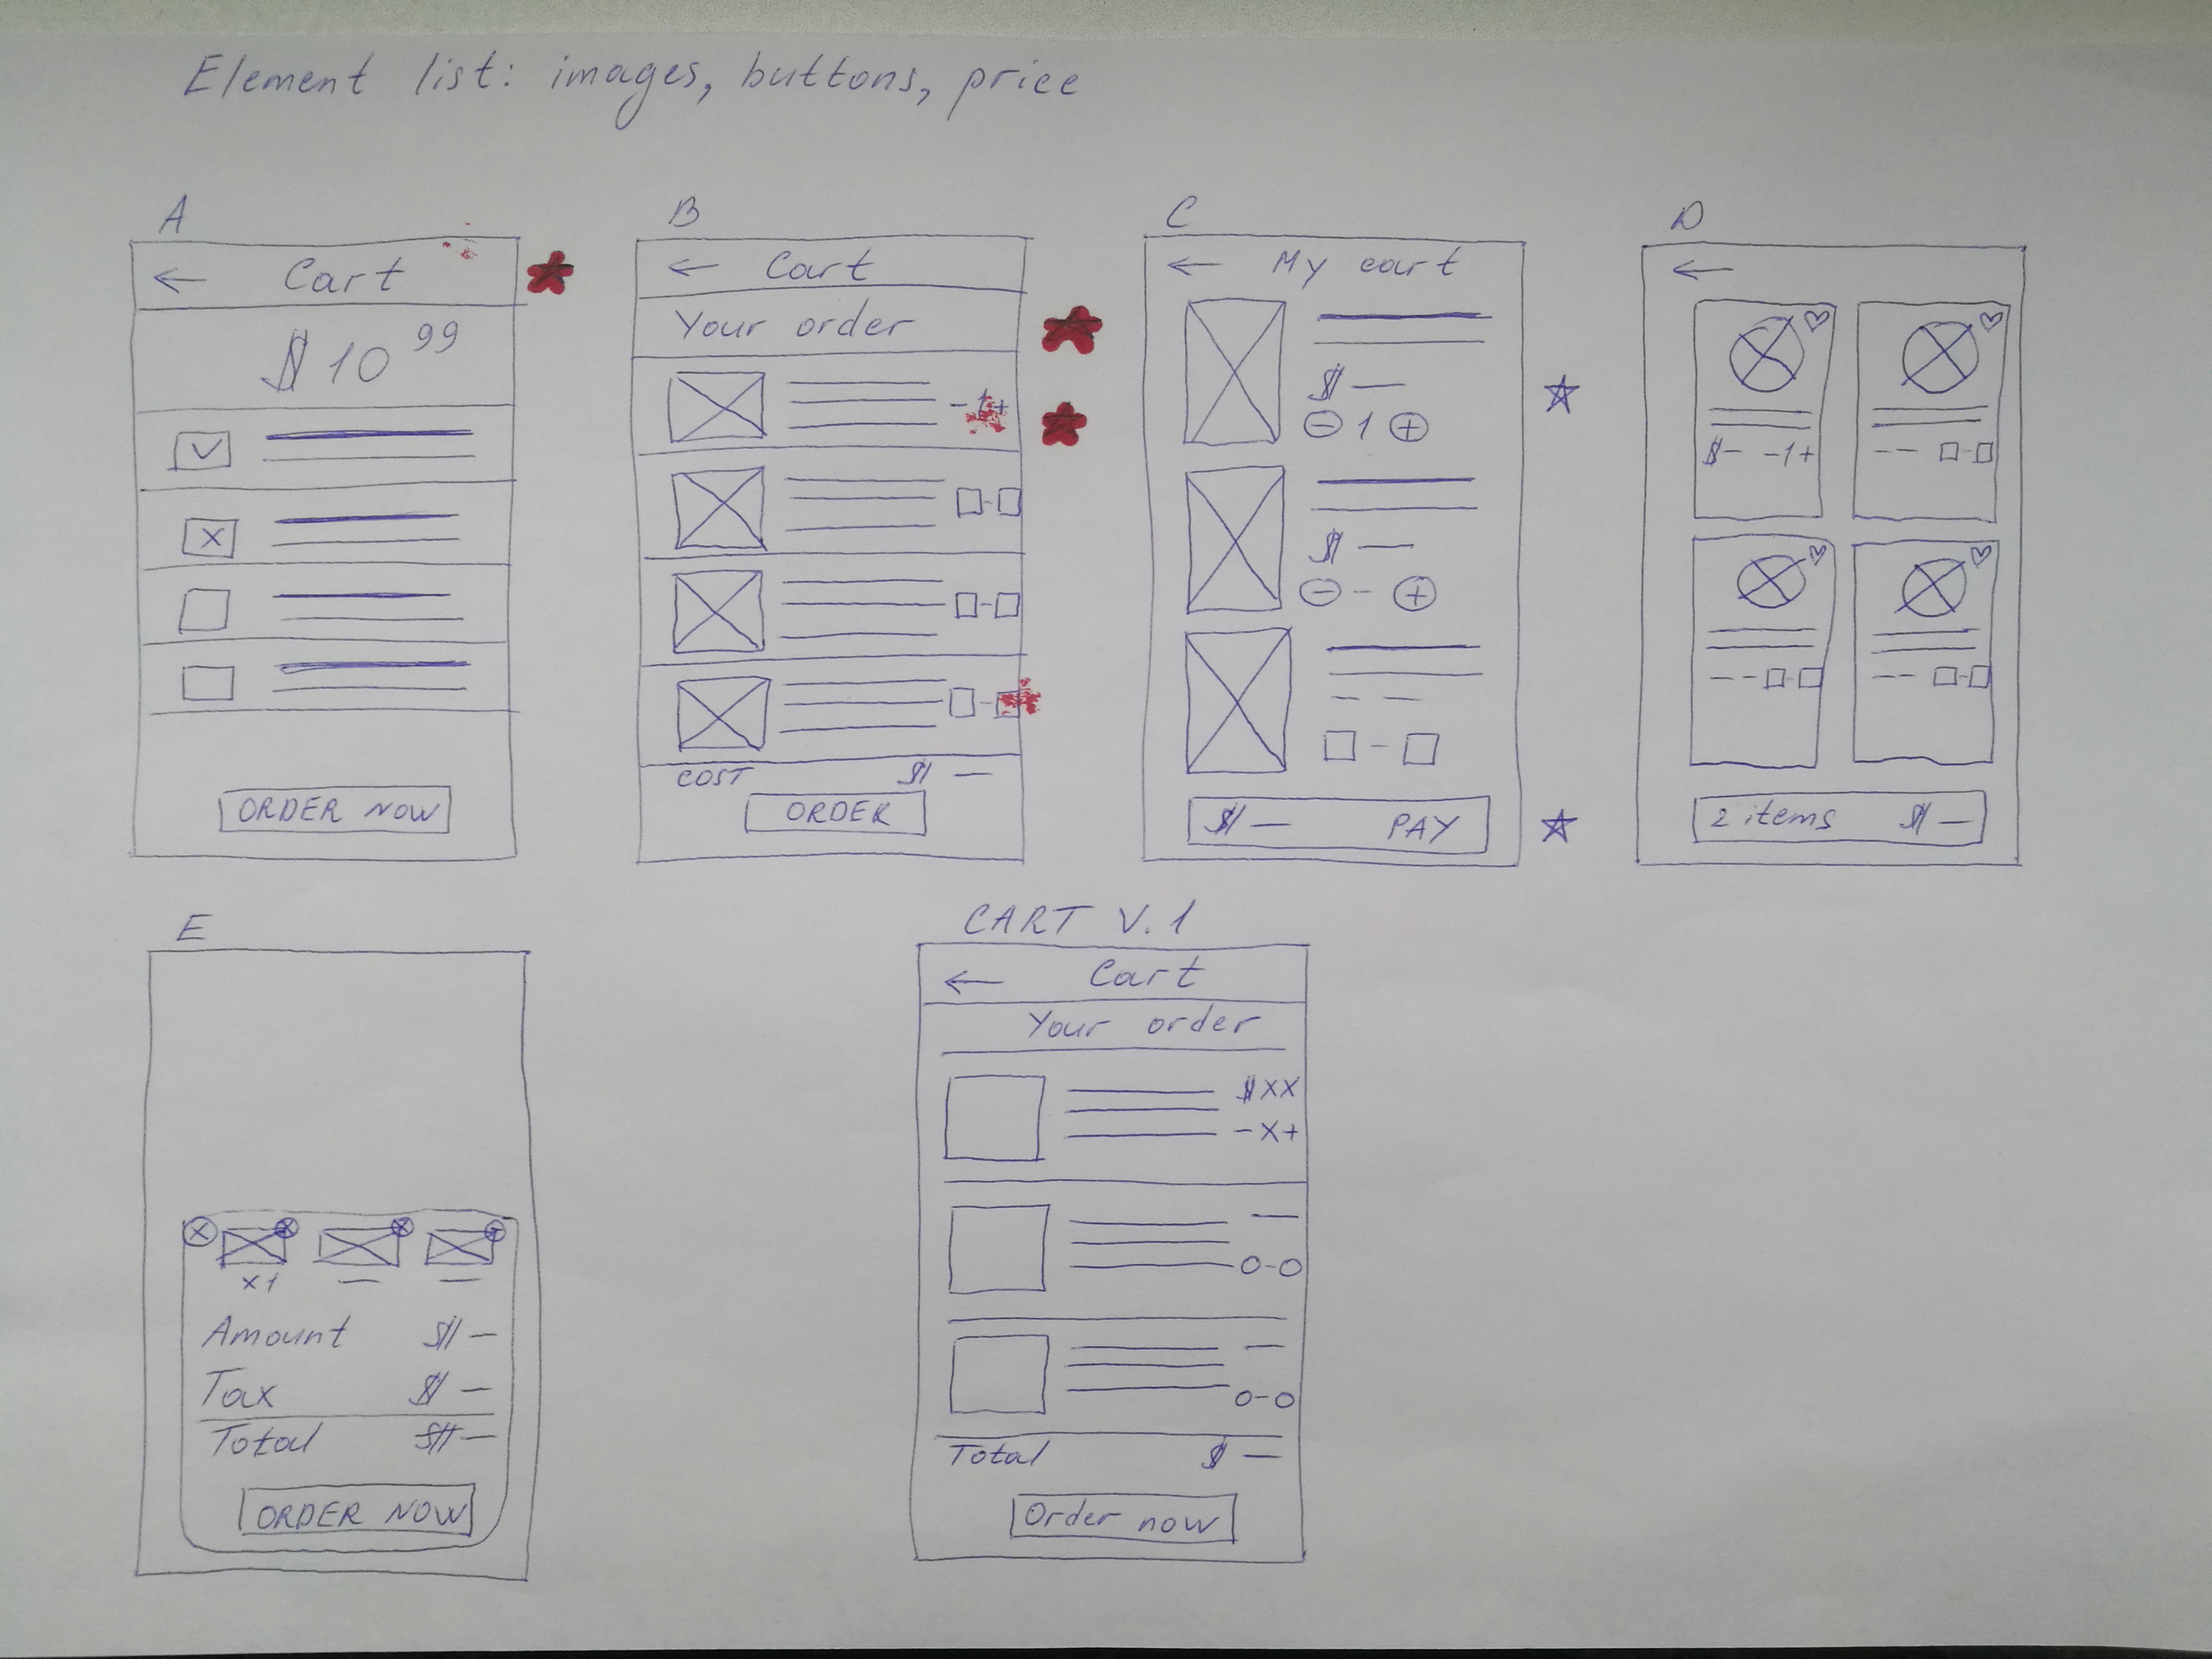 Element list: images, buttons, price
A
← Cart
$ 10 99
ORDER NOW
B
← Cart
Your order
- 1 +
COST $ —
ORDER
C
← My cart
$ —
- 1 +
$ —
- - +
$ — PAY
D
←
$ - - 1 +
2 items $ —
E
x1
Amount $ —
Tax $ —
Total $ —
ORDER NOW
CART V.1
← Cart
Your order
$ XX
- X +
Total $ —
Order now